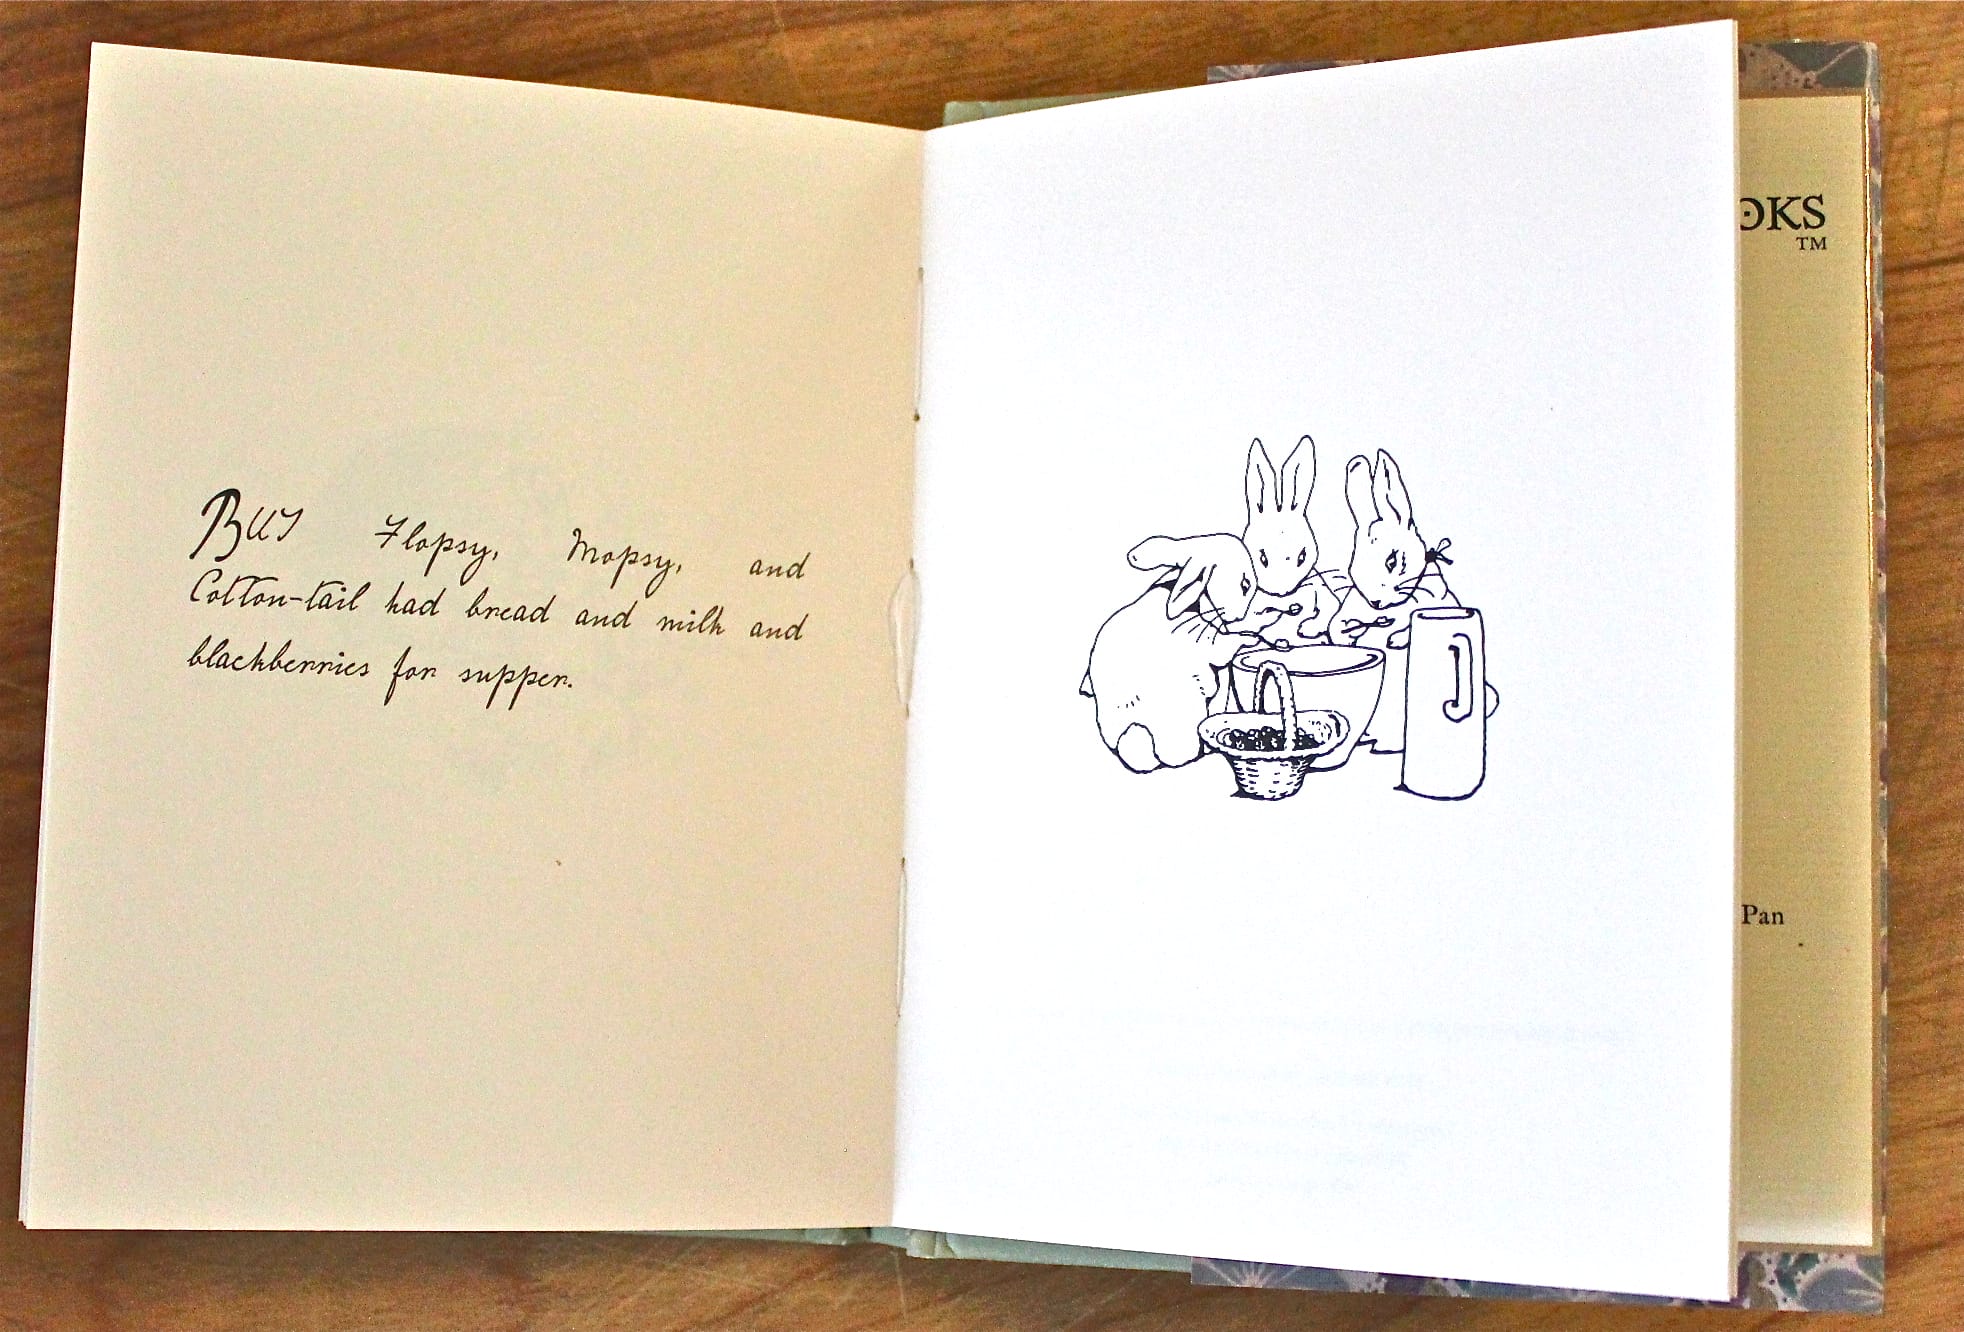 BUT Flopsy, Mopsy, and
Cotton-tail had bread and milk and
blackberries for supper.
OKS
TM
Pan